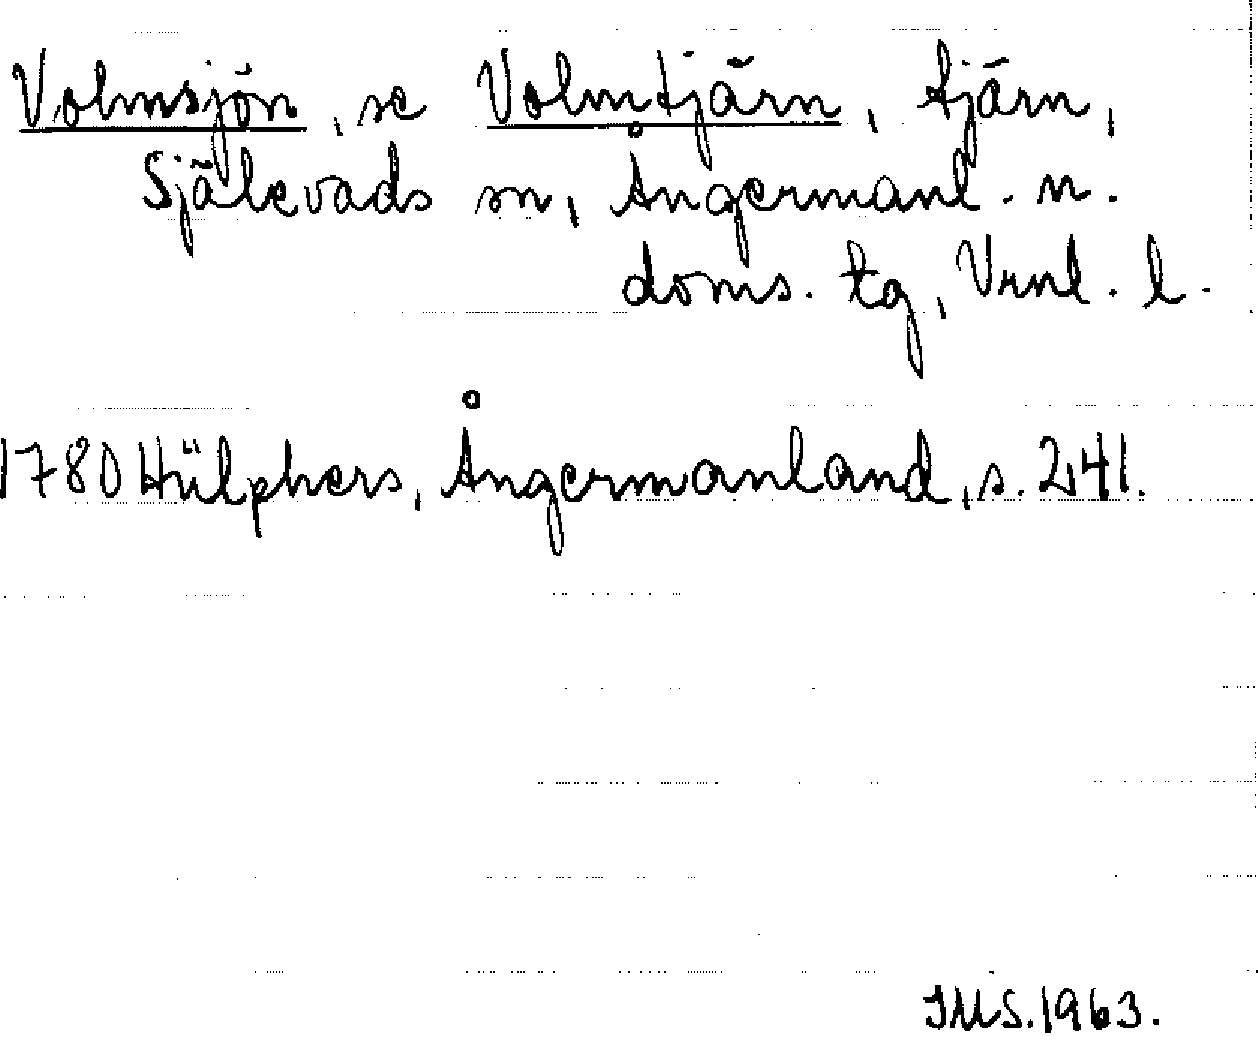 Volmsjön, se Volmtjärn, tjärn,
Själevads sn, Ångermanl. n.
doms. tg, Vrnl. l.
1780 Hülphers, Ångermanland, s. 241.
IMS. 1963.